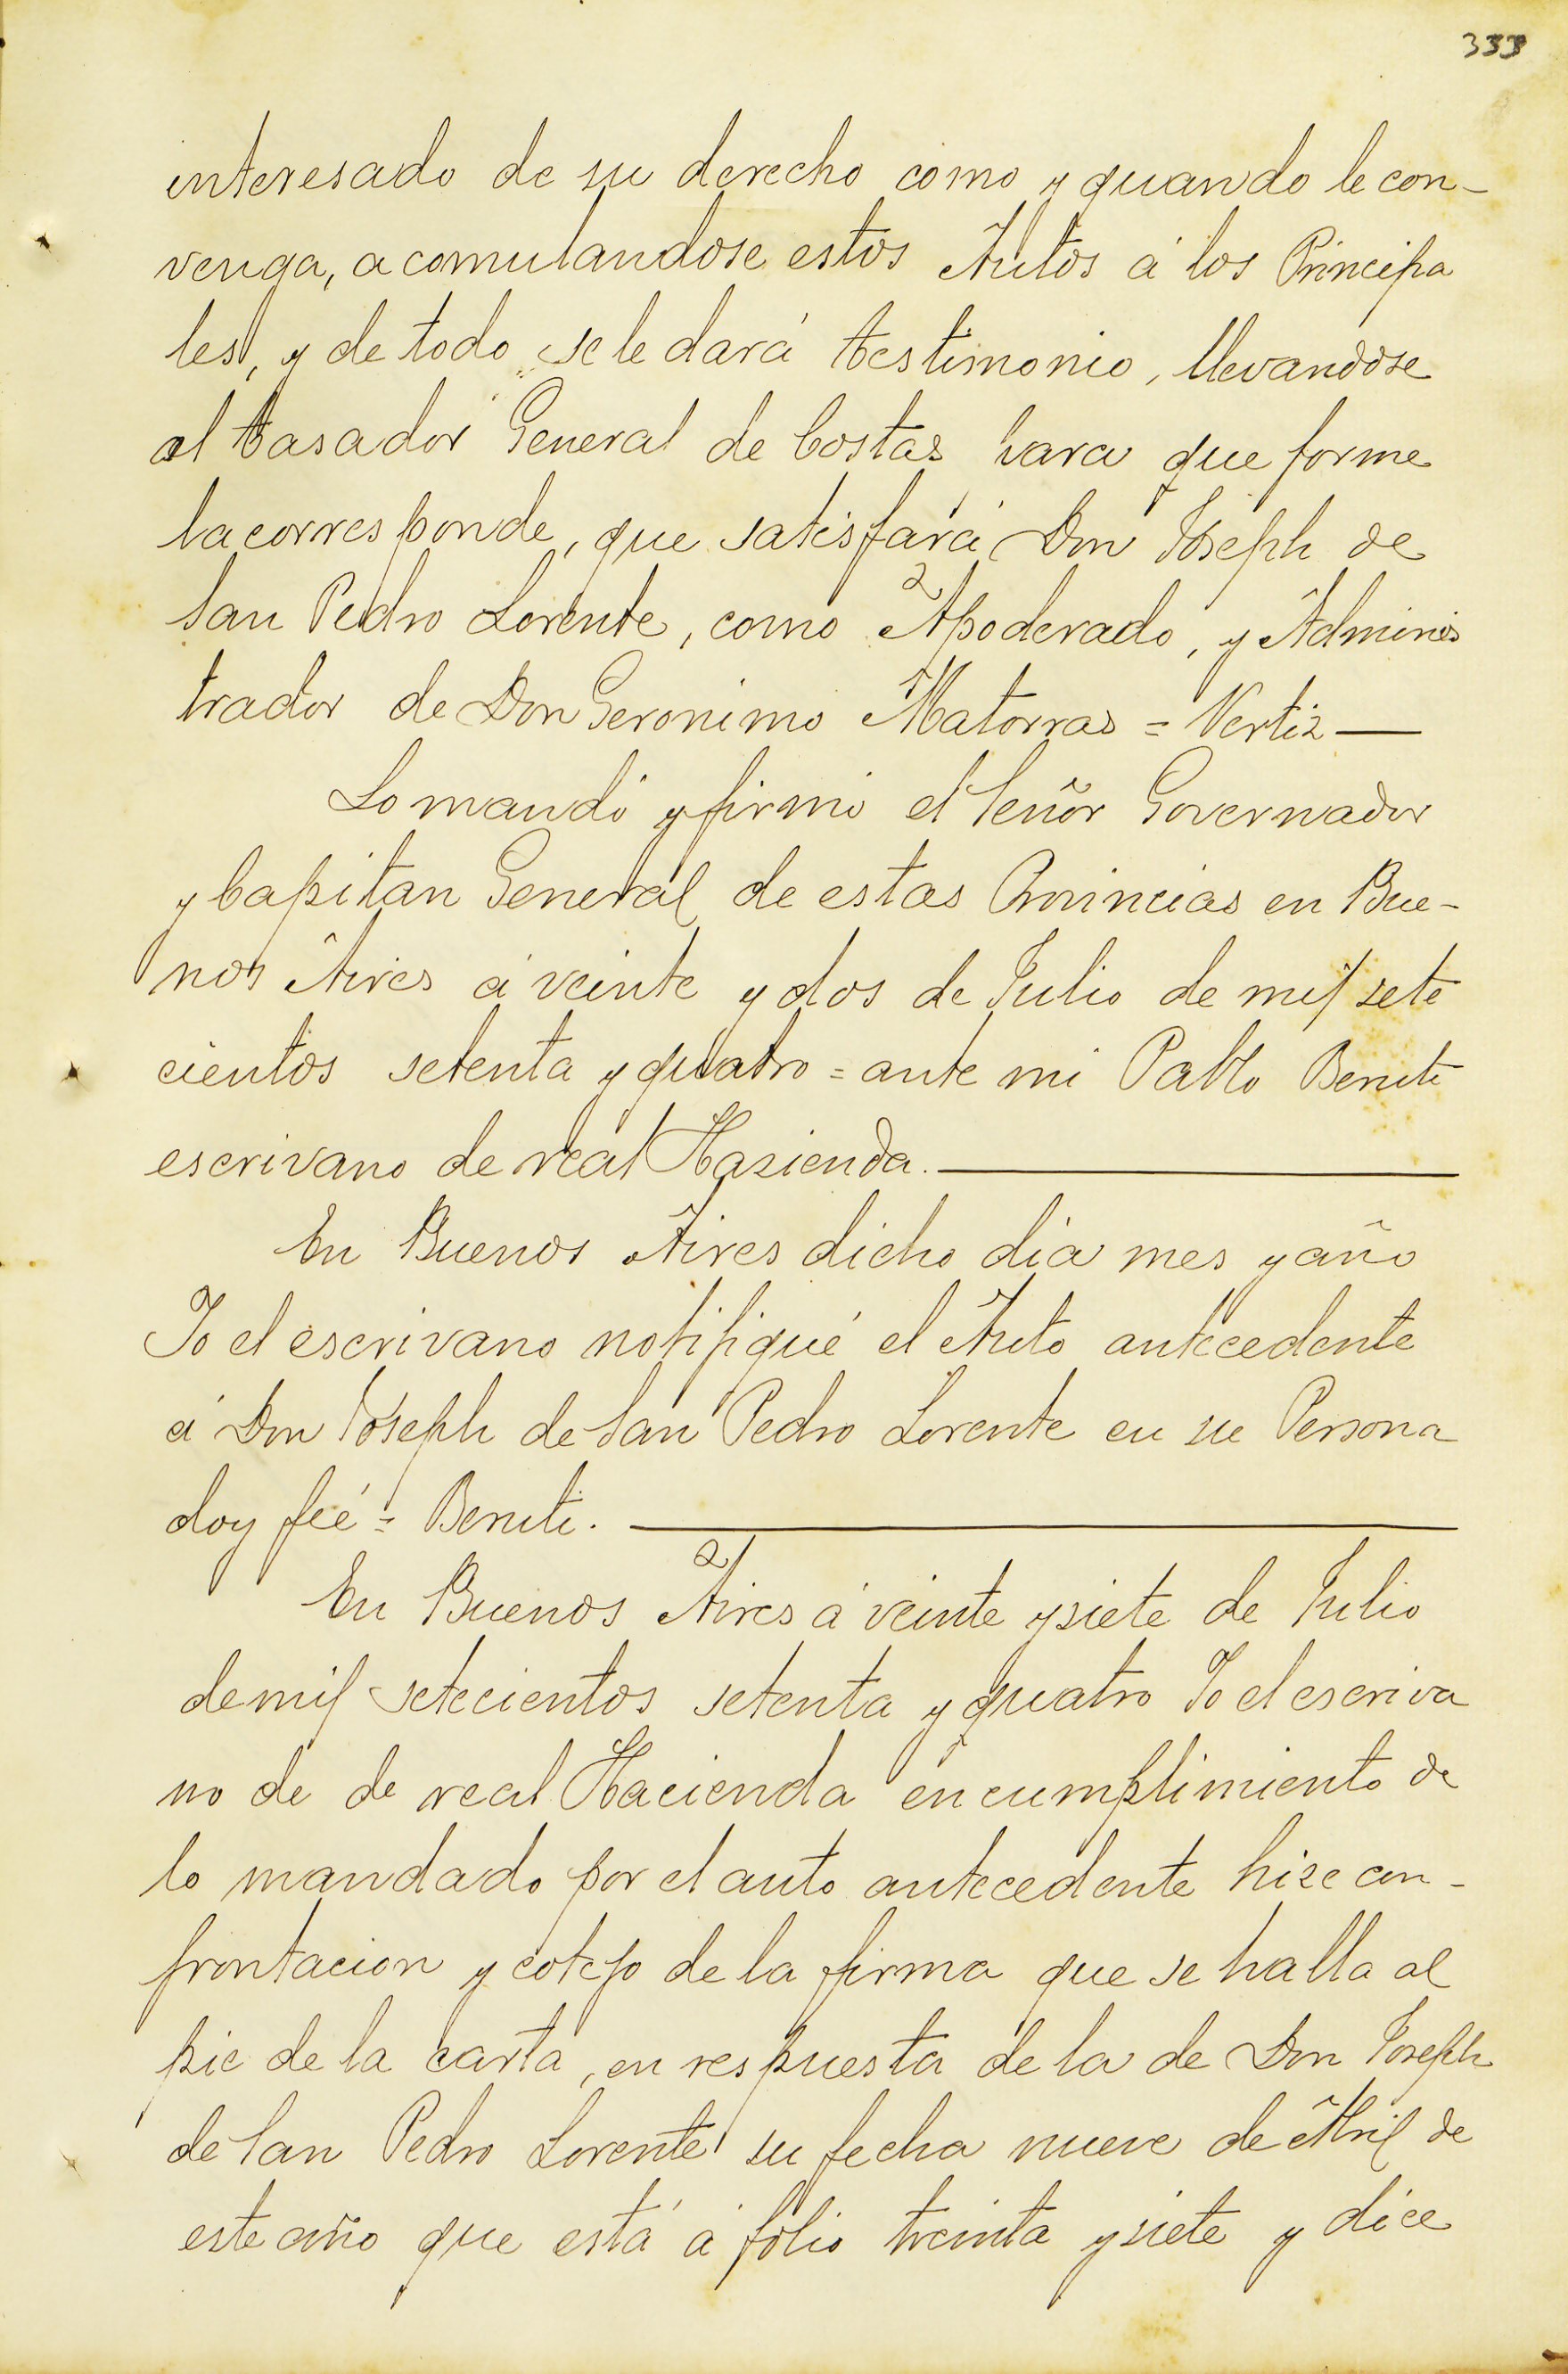 333
interesado de su derecho como y quando le con-
venga, acomulandose estos Autos á los Principa
les, y de todo se le dará testimonio, llevandose
al tasador General de Costas para que forme
la corresponde, que satisfará Don Joseph de
San Pedro Lorente, como Apoderado, y Adminis
trador de Don Geronimo Matorras = Vertiz —
Lo mandó y firmó el Señor Governador
y Capitan General de estas Provincias en Bue-
nos Aires á veinte y dos de Julio de mil sete
cientos setenta y quatro = ante mi Pablo Beruti
escrivano de real Hazienda. —
En Buenos Aires dicho dia mes y año
Yo el escrivano notifiqué el Auto antecedente
á Don Joseph de San Pedro Lorente en su Persona
doy feé = Beruti. —
En Buenos Aires á veinte y siete de Julio
de mil setecientos setenta y quatro Yo el escriva
no de de real Hacienda en cumplimiento de
lo mandado por el auto antecedente hize con-
frontacion y cotejo de la firma que se halla al
pie de la carta, en respuesta de la de Don Joseph
de San Pedro Lorente su fecha nueve de Abril de
este año que está á folio treinta y siete y dice